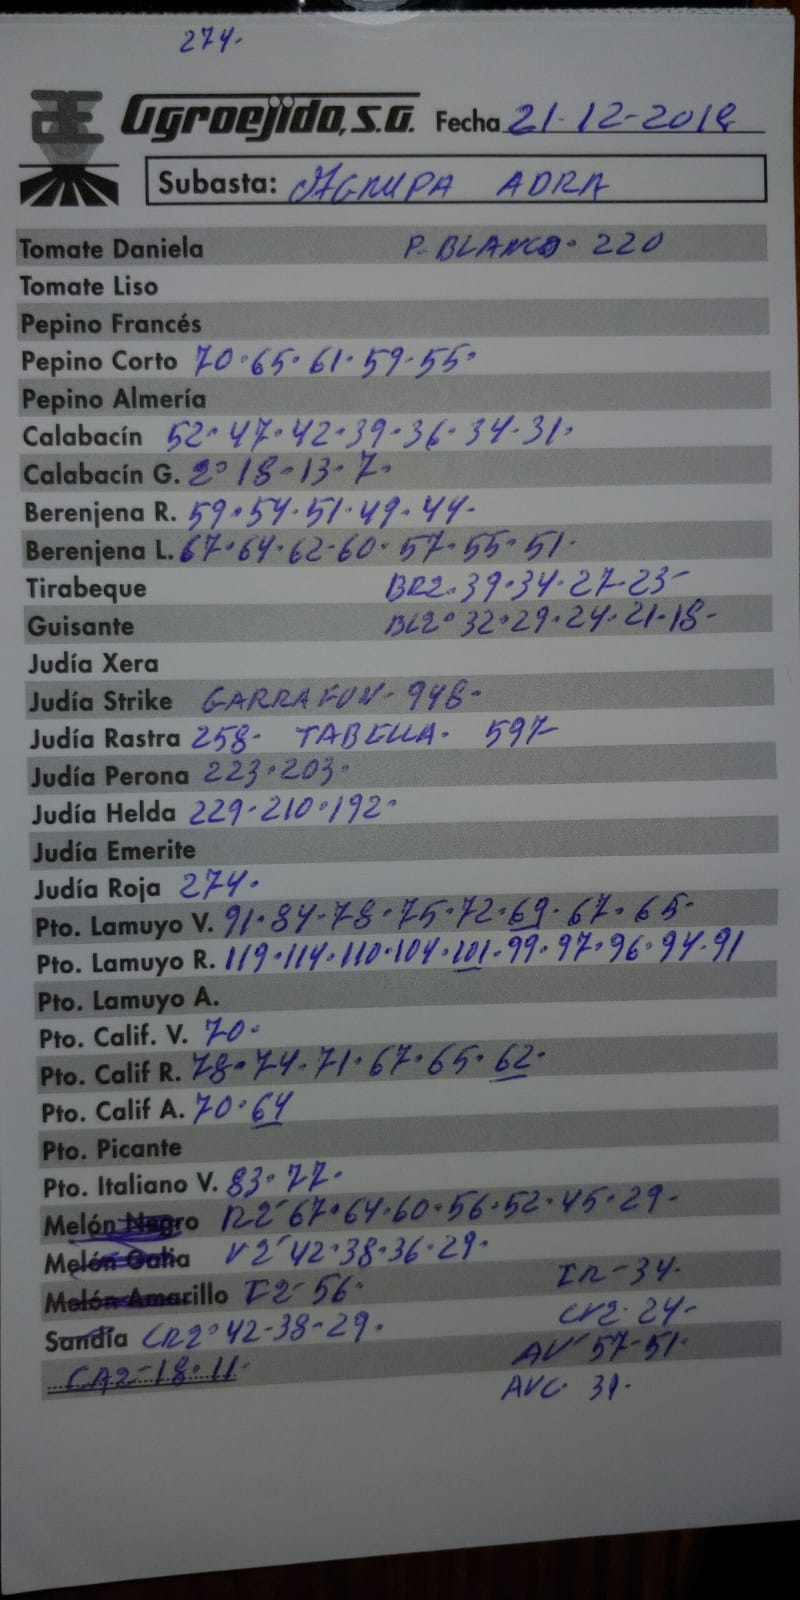 274.
Agroejido, S.A. Fecha 21-12-2018
Subasta: AGRUPA ADRA
Tomate Daniela P. BLANCO. 220
Tomate Liso
Pepino Francés
Pepino Corto 70. 65. 61. 59. 55.
Pepino Almería
Calabacín 52. 47. 42. 39. 36. 34. 31.
Calabacín G. 2º 18-13-7.
Berenjena R. 59. 54. 51. 49. 44.
Berenjena L. 67. 64. 62-60. 57. 55. 51.
Tirabeque BR2. 39. 34. 27-23-
Guisante BL2º 32. 29. 24. 21. 18-
Judía Xera
Judía Strike GARRAFON- 948.
Judía Rastra 258. TABELLA. 597-
Judía Perona 223. 203.
Judía Helda 229. 210. 192.
Judía Emerite
Judía Roja 274.
Pto. Lamuyo V. 91. 84-78. 75. 72. 69. 67. 65.
Pto. Lamuyo R. 119. 114. 110. 104. 101. 99. 97. 96. 94. 91
Pto. Lamuyo A.
Pto. Calif. V. 70.
Pto. Calif R. 78. 74. 71. 67. 65. 62.
Pto. Calif A. 70. 64
Pto. Picante
Pto. Italiano V. 83. 77.
Melón Negro R2- 67. 64. 60. 56. 52. 45. 29.
Melón Galia V2- 42. 38. 36. 29.
Melón Amarillo I2- 56. IR-34.
Sandía CR2º 42-38-29. CV2. 24-
CA2-18. 11. AV- 57-51.
AVC. 31.